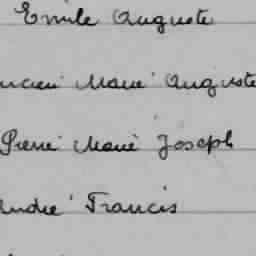 Emile Auguste
ucien Marie Auguste
Pierre Marie Joseph
André Francis